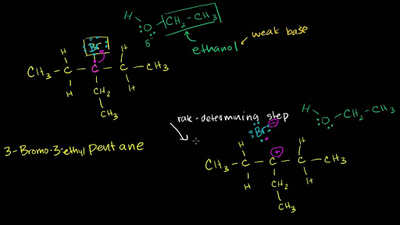 H
O
CH₂-CH₃
δ⁻
ethanol
weak base
H Br H
CH₃ - C - C - C - CH₃
H CH₂ H
CH₃
rate-determining step
Br
H
O
CH₂-CH₃
3-Bromo-3-ethyl pentane
H H
CH₃ - C - C - C - CH₃
H CH₂ H
CH₃